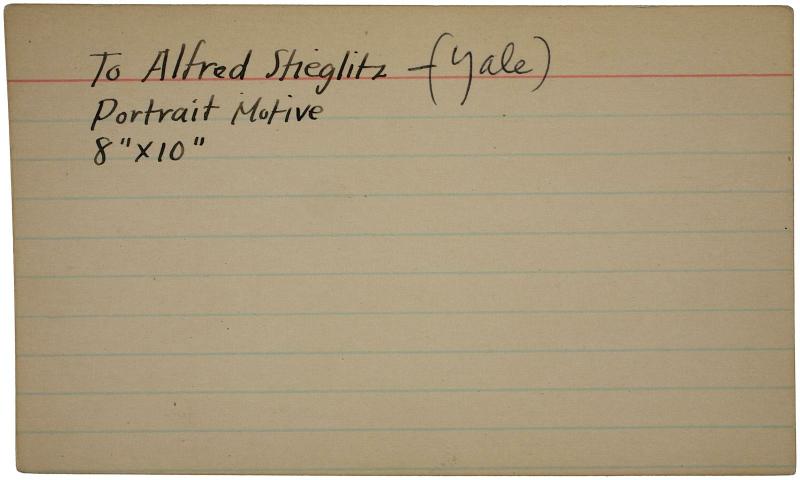 To Alfred Stieglitz - (Yale)
Portrait Motive
8" x 10"